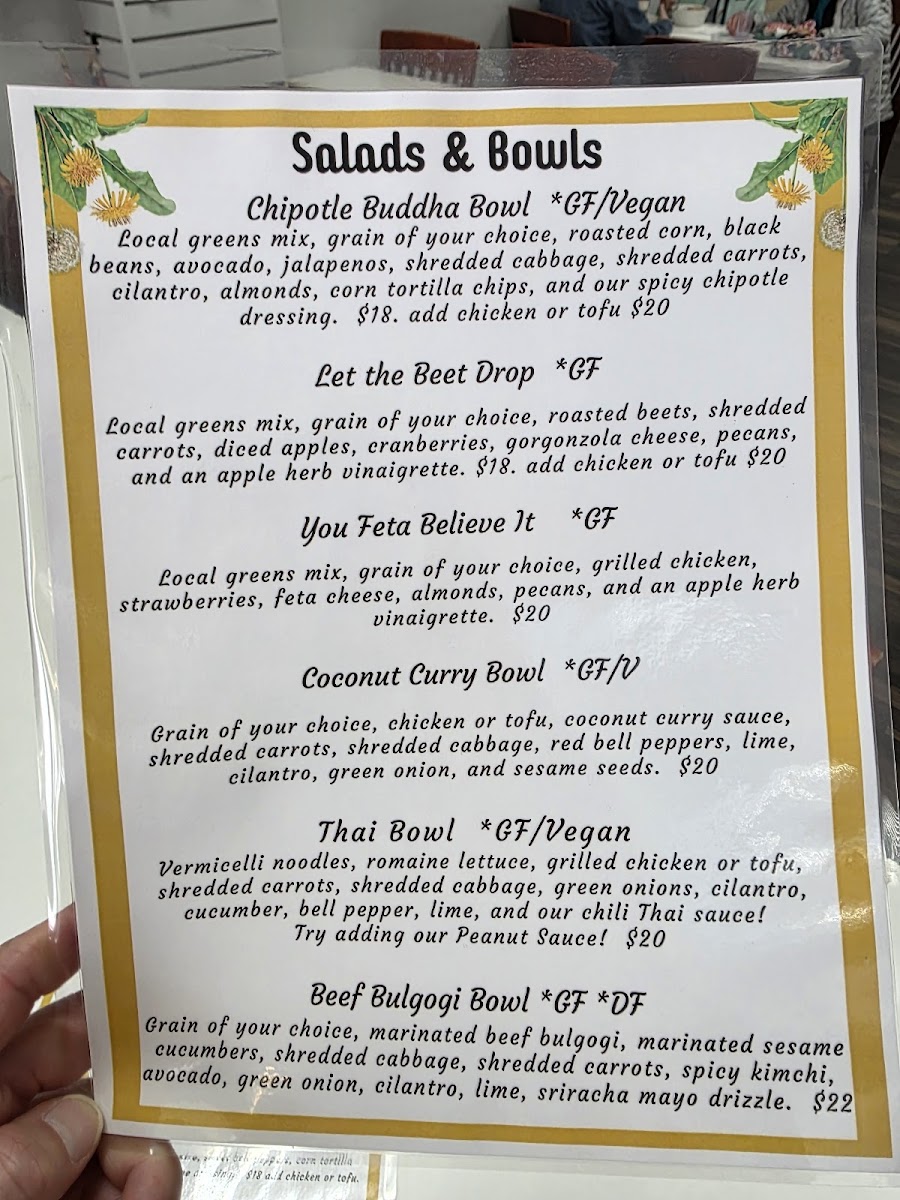 Salads & Bowls
Chipotle Buddha Bowl *GF/Vegan
Local greens mix, grain of your choice, roasted corn, black
beans, avocado, jalapenos, shredded cabbage, shredded carrots,
cilantro, almonds, corn tortilla chips, and our spicy chipotle
dressing. $18. add chicken or tofu $20
Let the Beet Drop *GF
Local greens mix, grain of your choice, roasted beets, shredded
carrots, diced apples, cranberries, gorgonzola cheese, pecans,
and an apple herb vinaigrette. $18. add chicken or tofu $20
You Feta Believe It *GF
Local greens mix, grain of your choice, grilled chicken,
strawberries, feta cheese, almonds, pecans, and an apple herb
vinaigrette. $20
Coconut Curry Bowl *GF/V
Grain of your choice, chicken or tofu, coconut curry sauce,
shredded carrots, shredded cabbage, red bell peppers, lime,
cilantro, green onion, and sesame seeds. $20
Thai Bowl *GF/Vegan
Vermicelli noodles, romaine lettuce, grilled chicken or tofu,
shredded carrots, shredded cabbage, green onions, cilantro,
cucumber, bell pepper, lime, and our chili Thai sauce!
Try adding our Peanut Sauce! $20
Beef Bulgogi Bowl *GF *DF
Grain of your choice, marinated beef bulgogi, marinated sesame
cucumbers, shredded cabbage, shredded carrots, spicy kimchi,
avocado, green onion, cilantro, lime, sriracha mayo drizzle. $22
corn tortilla
$18 add chicken or tofu.